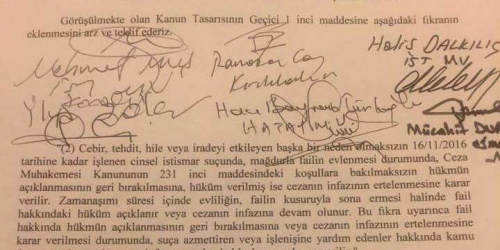 Görüşülmekte olan Kanun Tasarısının Geçici 1 inci maddesine aşağıdaki fıkranın
eklenmesini arz ve teklif ederiz.
Mehmet
Ramazan Can
Kırıkkale
Halis DALKILIÇ
İST MV
Hacı Bayram
HATAY MV
Mücahit
(2) Cebir, tehdit, hile veya iradeyi etkileyen başka bir neden olmaksızın 16/11/2016
tarihine kadar işlenen cinsel istismar suçunda, mağdurla failin evlenmesi durumunda, Ceza
Muhakemesi Kanununun 231 inci maddesindeki koşullara bakılmaksızın hükmün
açıklanmasının geri bırakılmasına, hüküm verilmiş ise cezanın infazının ertelenmesine karar
verilir. Zamanaşımı süresi içinde evliliğin, failin kusuruyla sona ermesi halinde fail
hakkındaki hüküm açıklanır veya cezanın infazına devam olunur. Bu fıkra uyarınca fail
hakkında hükmün açıklanmasının geri bırakılmasına veya cezanın infazının ertelenmesine
karar verilmesi durumunda, suça azmettiren veya işlenişine yardım edenler hakkında kamu